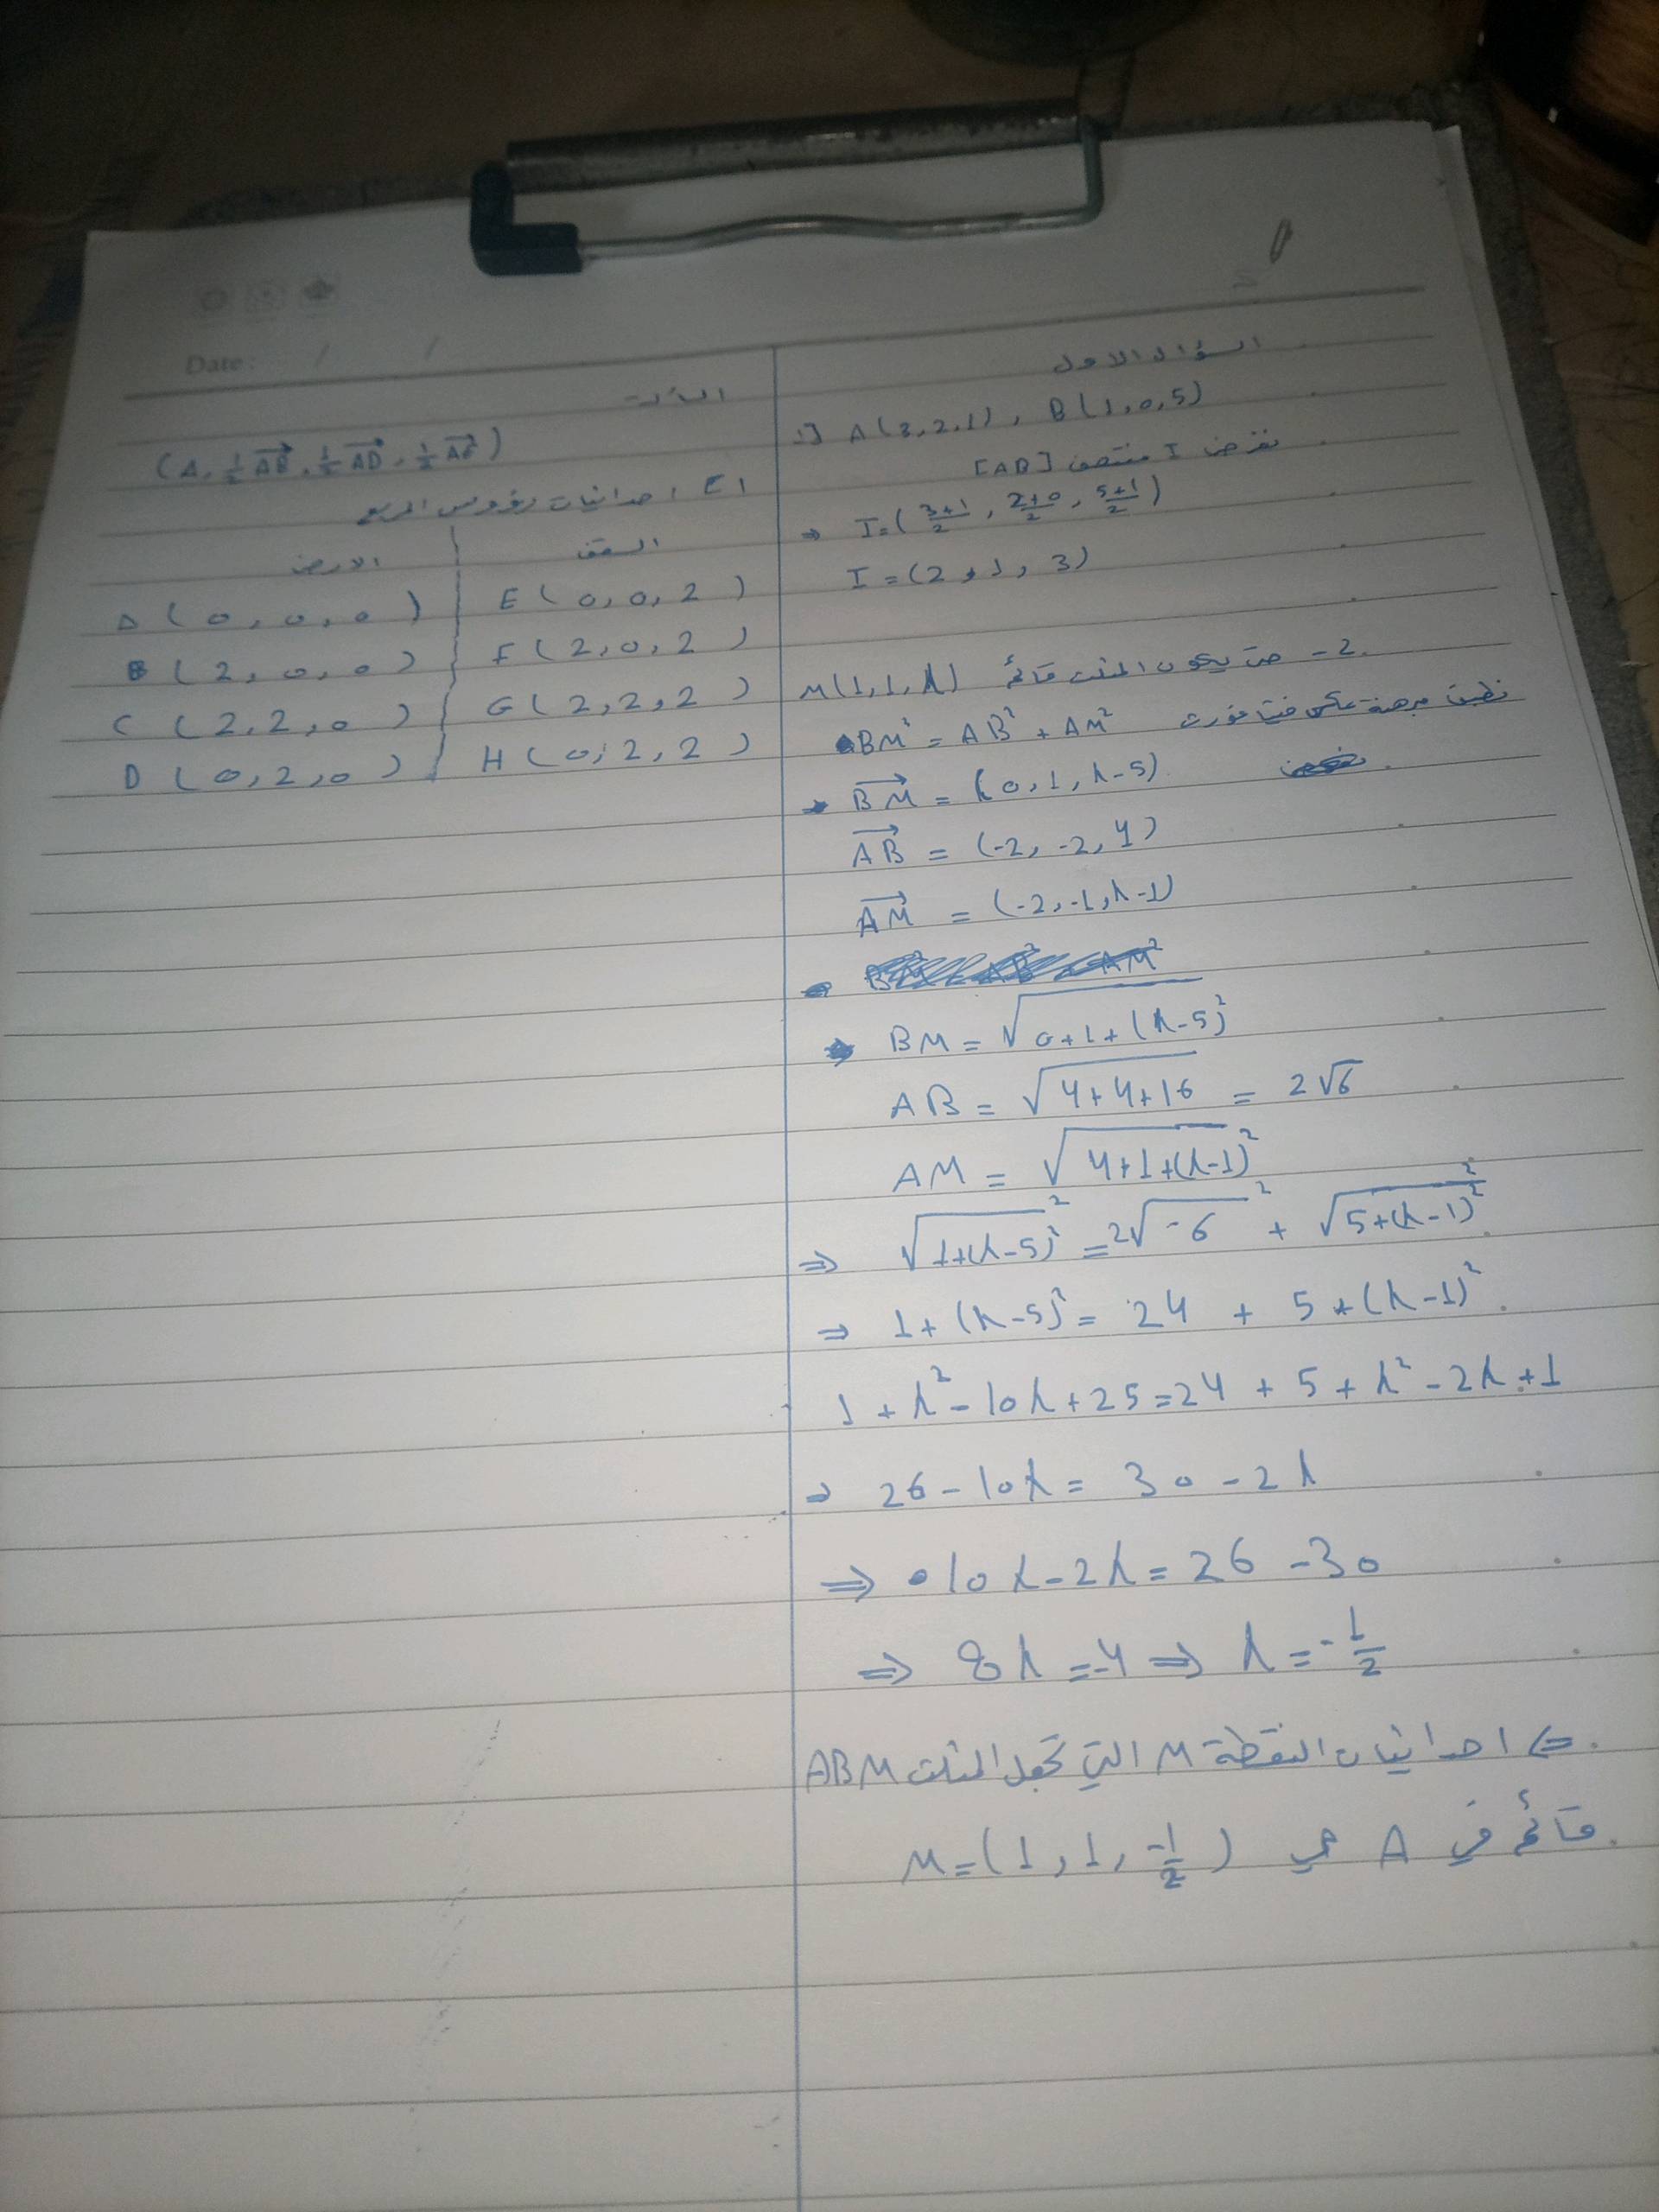 Date: / /
السؤال الاول
1] A(3,2,1), B(1,0,5)
نفرض I منتصف [AB]
⇒ I=(3+1/2, 2+0/2, 5+1/2)
I=(2,1,3)
2- حتى يكون المثلث قائم M(1,1,λ)
نطبق مبرهنة عكس فيثاغورث BM² = AB² + AM²
BM→ = (0,1,λ-5)
AB→ = (-2,-2,4)
AM→ = (-2,-1,λ-1)
BM = √0+1+(λ-5)²
AB = √4+4+16 = 2√6
AM = √4+1+(λ-1)²
⇒ √1+(λ-5)² ² = 2√6 ² + √5+(λ-1)² ²
⇒ 1+(λ-5)² = 24 + 5+(λ-1)²
1+λ²-10λ+25=24+5+λ²-2λ+1
⇒ 26-10λ = 30-2λ
⇒ 10λ-2λ=26-30
⇒ 8λ=-4 ⇒ λ=-1/2
⇐ احداثيات النقطة M التي تجعل المثلث ABM
قائم في A هي M=(1,1,-1/2)
الثالث
(A, 1/2 AB→, 1/2 AD→, 1/2 AE→)
1] احداثيات رؤوس المربع
السقف الارض
A(0,0,0) E(0,0,2)
B(2,0,0) F(2,0,2)
C(2,2,0) G(2,2,2)
D(0,2,0) H(0,2,2)